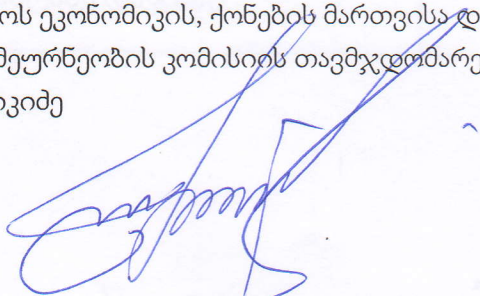 ოს ეკონომიკის, ქონების მართვისა დ
მეურნეობის კომისიის თავმჯდომარე
იკიძე